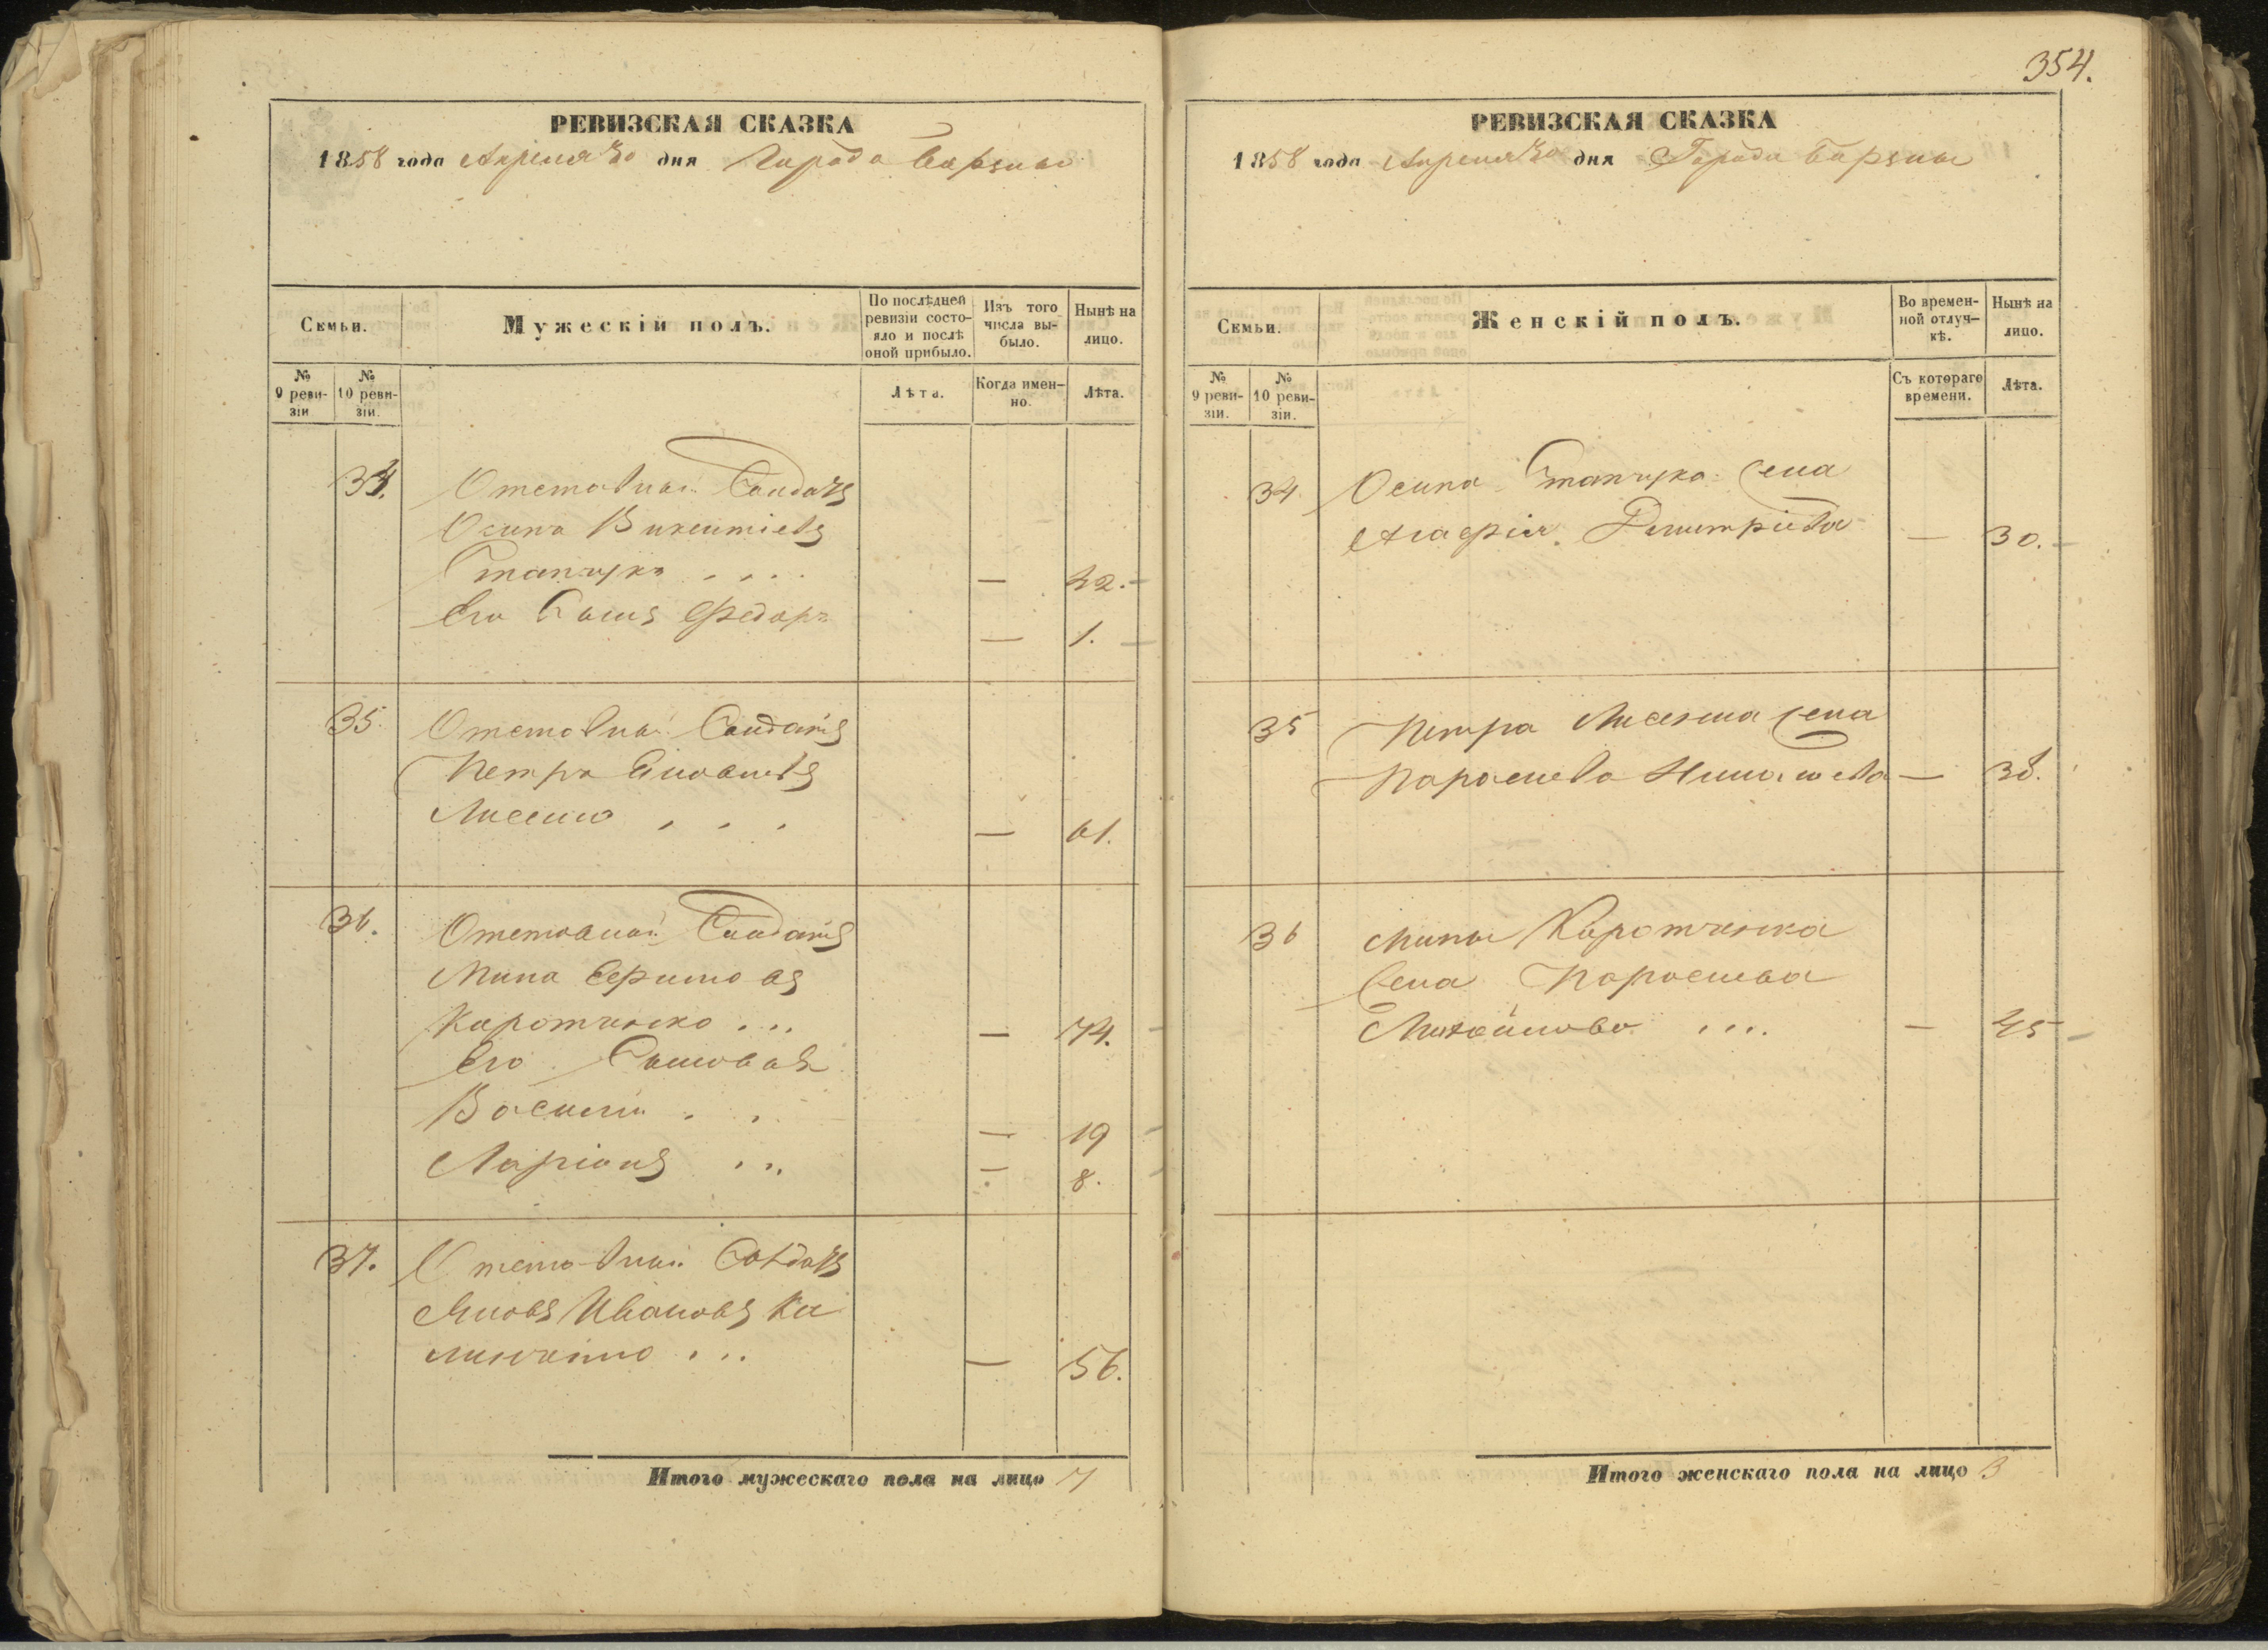 354.
РЕВИЗСКАЯ СКАЗКА
1858 года Апреля 30 дня Города Борзны
Семьи.
Мужескій полъ.
По послѣдней ревизіи состояло и послѣ оной прибыло.
Изъ того числа выбыло.
Нынѣ на лицо.
№ 9 ревизіи
№ 10 ревизіи.
Лѣта.
Когда именно.
Лѣта.
34. Отставный Солдатъ
Осипъ Викентіевъ
— 32.
Его Сынъ Федоръ — 1.
35. Отставный Солдатъ
Петръ
Лисенко — 61.
36. Отставный Солдатъ
Мина
Коротченко ... — 74.
Его Сыновья
Василій — 19
Ларіонъ — 8.
37. Отставный Солдатъ
Яковъ Ивановъ Ка
— 56.
Итого мужескаго пола на лицо 7
РЕВИЗСКАЯ СКАЗКА
1858 года Апреля 30 дня Города Борзны
Семьи.
Женскій полъ.
Во временной отлучкѣ.
Нынѣ на лицо.
№ 9 ревизіи.
№ 10 ревизіи.
Съ котораго времени.
Лѣта.
34 Осипа жена
Агафія Дмитріева — 30.
35 Петра Лисенка жена
Параскева — 38.
36 Мины Коротченка
жена Параскева
Михайлова ... — 45
Итого женскаго пола на лицо 3